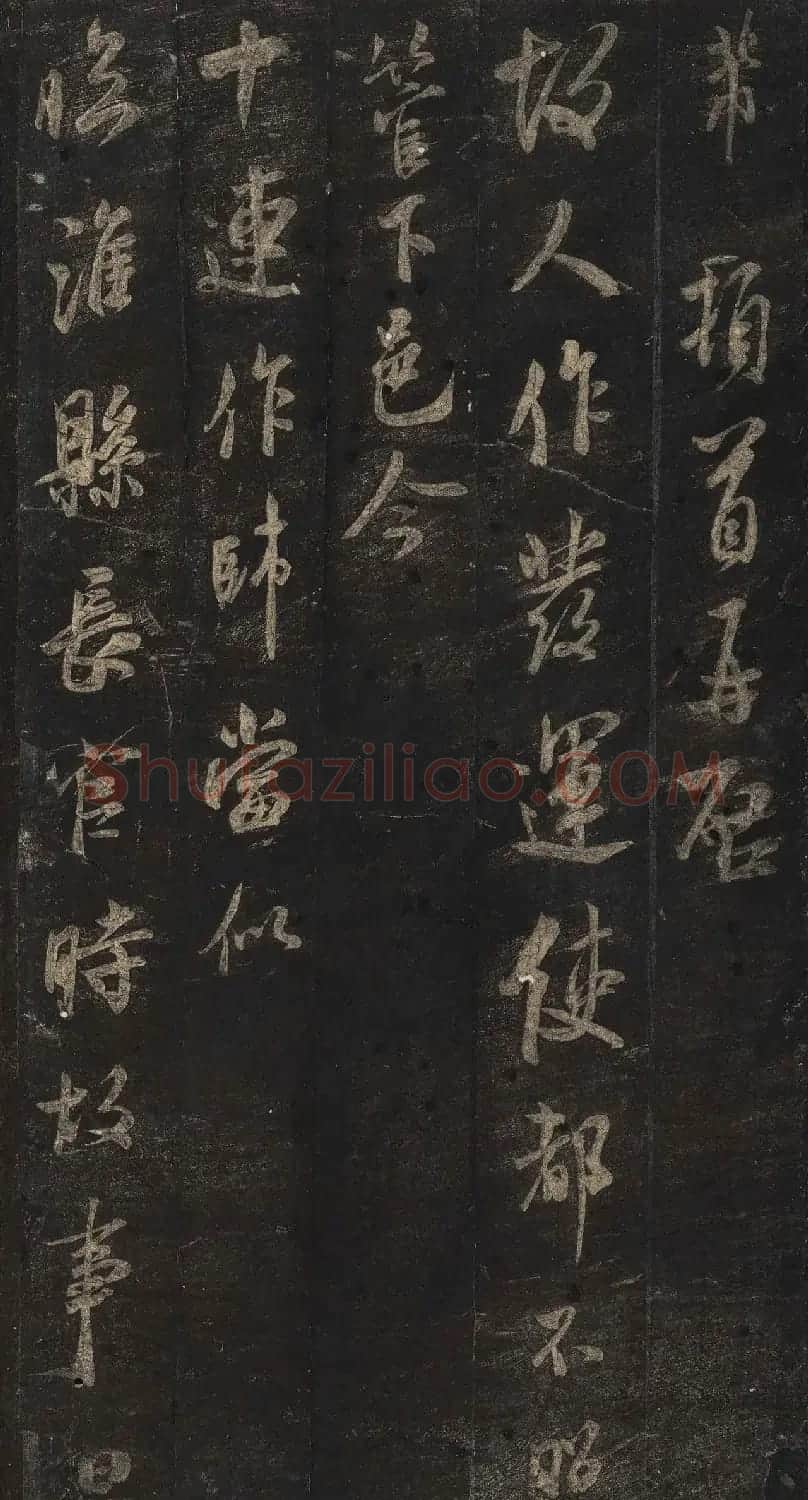 芾頓首再啓
故人作發運使都不照
管下邑今
十連作帥當似
臨淮縣長官時故事日
Shufaziliao.COM